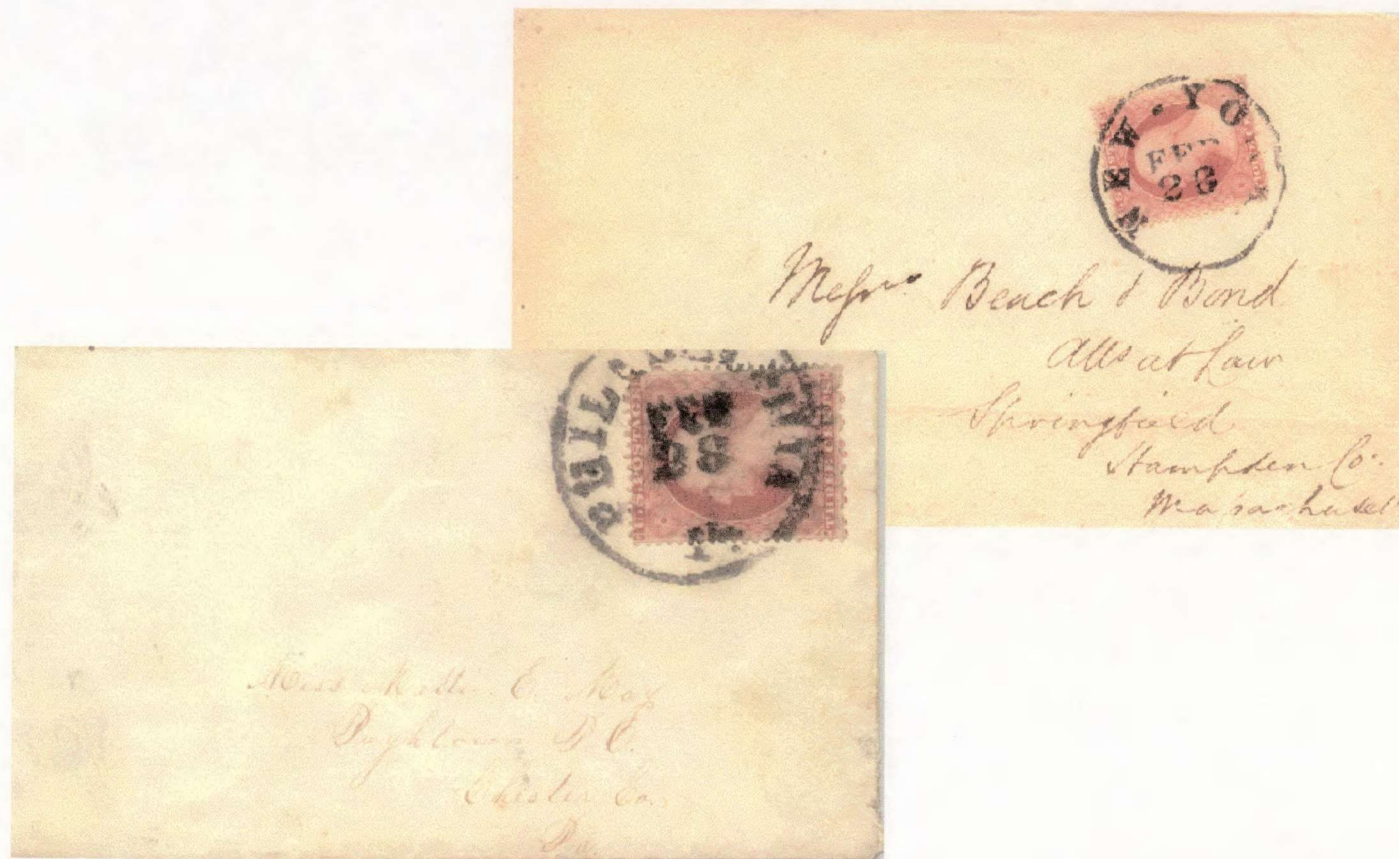 NEW-YO
FEB
28
Messrs Beach & Bond
Atts at Law
Springfield
Hampden Co.
PHILADELPHIA
Miss Mattie E. May
Pughtown P. O.
Chester Co.
Pa.